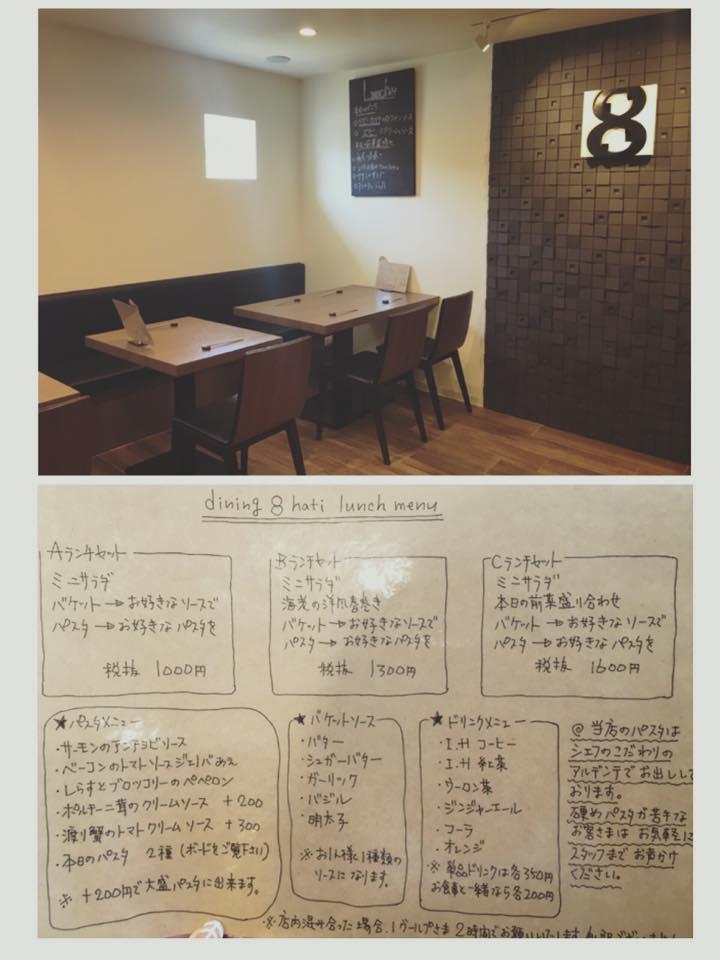 8
Lunch
dining 8 hati lunch menu
Aランチセット
ミニサラダ
バケット→お好きなソースで
パスタ→お好きなパスタを
税抜 1000円
Bランチセット
ミニサラダ
海老の洋風春巻き
バケット→お好きなソースで
パスタ→お好きなパスタを
税抜 1300円
Cランチセット
ミニサラダ
本日の前菜盛り合わせ
バケット→お好きなソースで
パスタ→お好きなパスタを
税抜 1600円
★パスタメニュー
・サーモンのアンチョビソース
・ベーコンのトマトソースジェノバあえ
・しらすとブロッコリーのペペロン
・ポルチーニ茸のクリームソース +200
・渡り蟹のトマトクリームソース +300
・本日のパスタ 2種(ボードをご覧下さい)
※ +200円で大盛パスタに出来ます。
★バケットソース
・バター
・シュガーバター
・ガーリック
・バジル
・明太子
※お1人様1種類の
ソースになります。
★ドリンクメニュー
・I.H コーヒー
・I.H 紅茶
・ウーロン茶
・ジンジャーエール
・コーラ
・オレンジ
※単品ドリンクは各350円
お食事と一緒なら各200円
@ 当店のパスタは
シェフのこだわりの
アルデンテでお出しして
おります。
硬めパスタが苦手な
お客さまは お気軽に
スタッフまで お声かけ
ください。
※店内混み合った場合、1グループさま2時間でお願いいたします